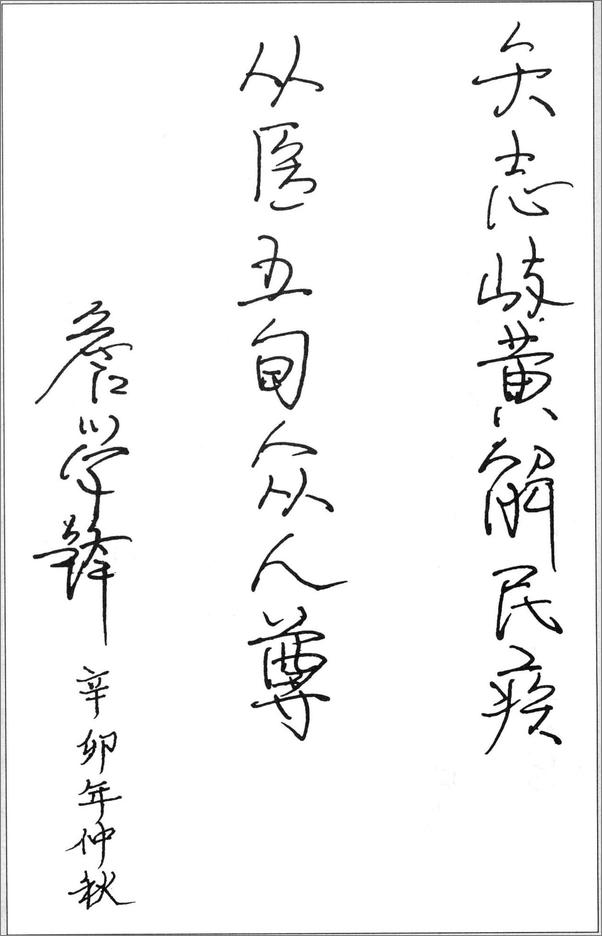 矢志岐黄解民疾
从医五旬众人尊
詹学锋 辛卯年仲秋